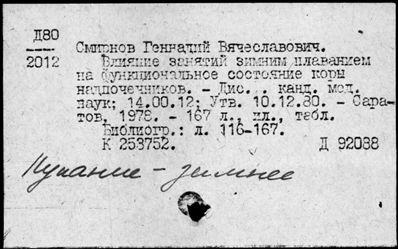 Д80
2012
Смирнов Геннадий Вячеславович.
Влияние занятий зимним плаванием
на функциональное состояние коры
надпочечников. - Дис. . канд. мед.
наук; 14.00.12; Утв. 10.12.80. - Сара-
тов, 1978. - 167 л., ил., табл.
Библиогр.: л. 116-167.
К 253752. Д 92088
Купание - зимнее